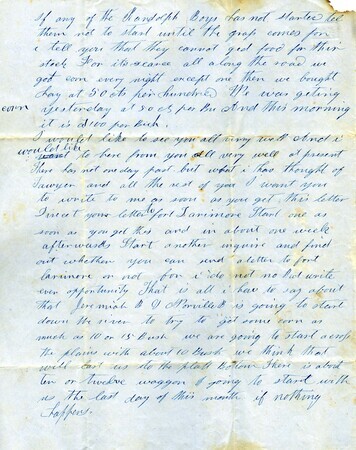 If any of the Randolph Boys has not started tel
them not to start until the grass comes for
i tell you that they cannot get food for their
stock For its scarce all along the road we
got corn every night except one then we bought
hay at 50 cts per hundred We was geting
corn yesterday at 50 cts per Bu And this morning
it is $1.00 per Bush.
I would like to see you all very well And i
would like to hear from you all very well at present
There has not one day past but what i had thought of
Sawyer and all the rest of you I want you
to write to me as soon as you got this letter
Direct your letters to fort Larimore Start one as
soon as you got this and in about one week
afterwards Start another inquire and find
out whether you can send a letter to fort
Larimore or not for i do not no but write
every opportunity That is all i have to say about
that Jeremiah & D Norville is going to start
down the river to try to get some corn as
much as 10 or 15 Bush we are going to start across
the plains with about 10 Bush we think that
will last us to the platt Botom There is about
ten or twelve waggon going to start with
us the last day of this month if nothing
happens.